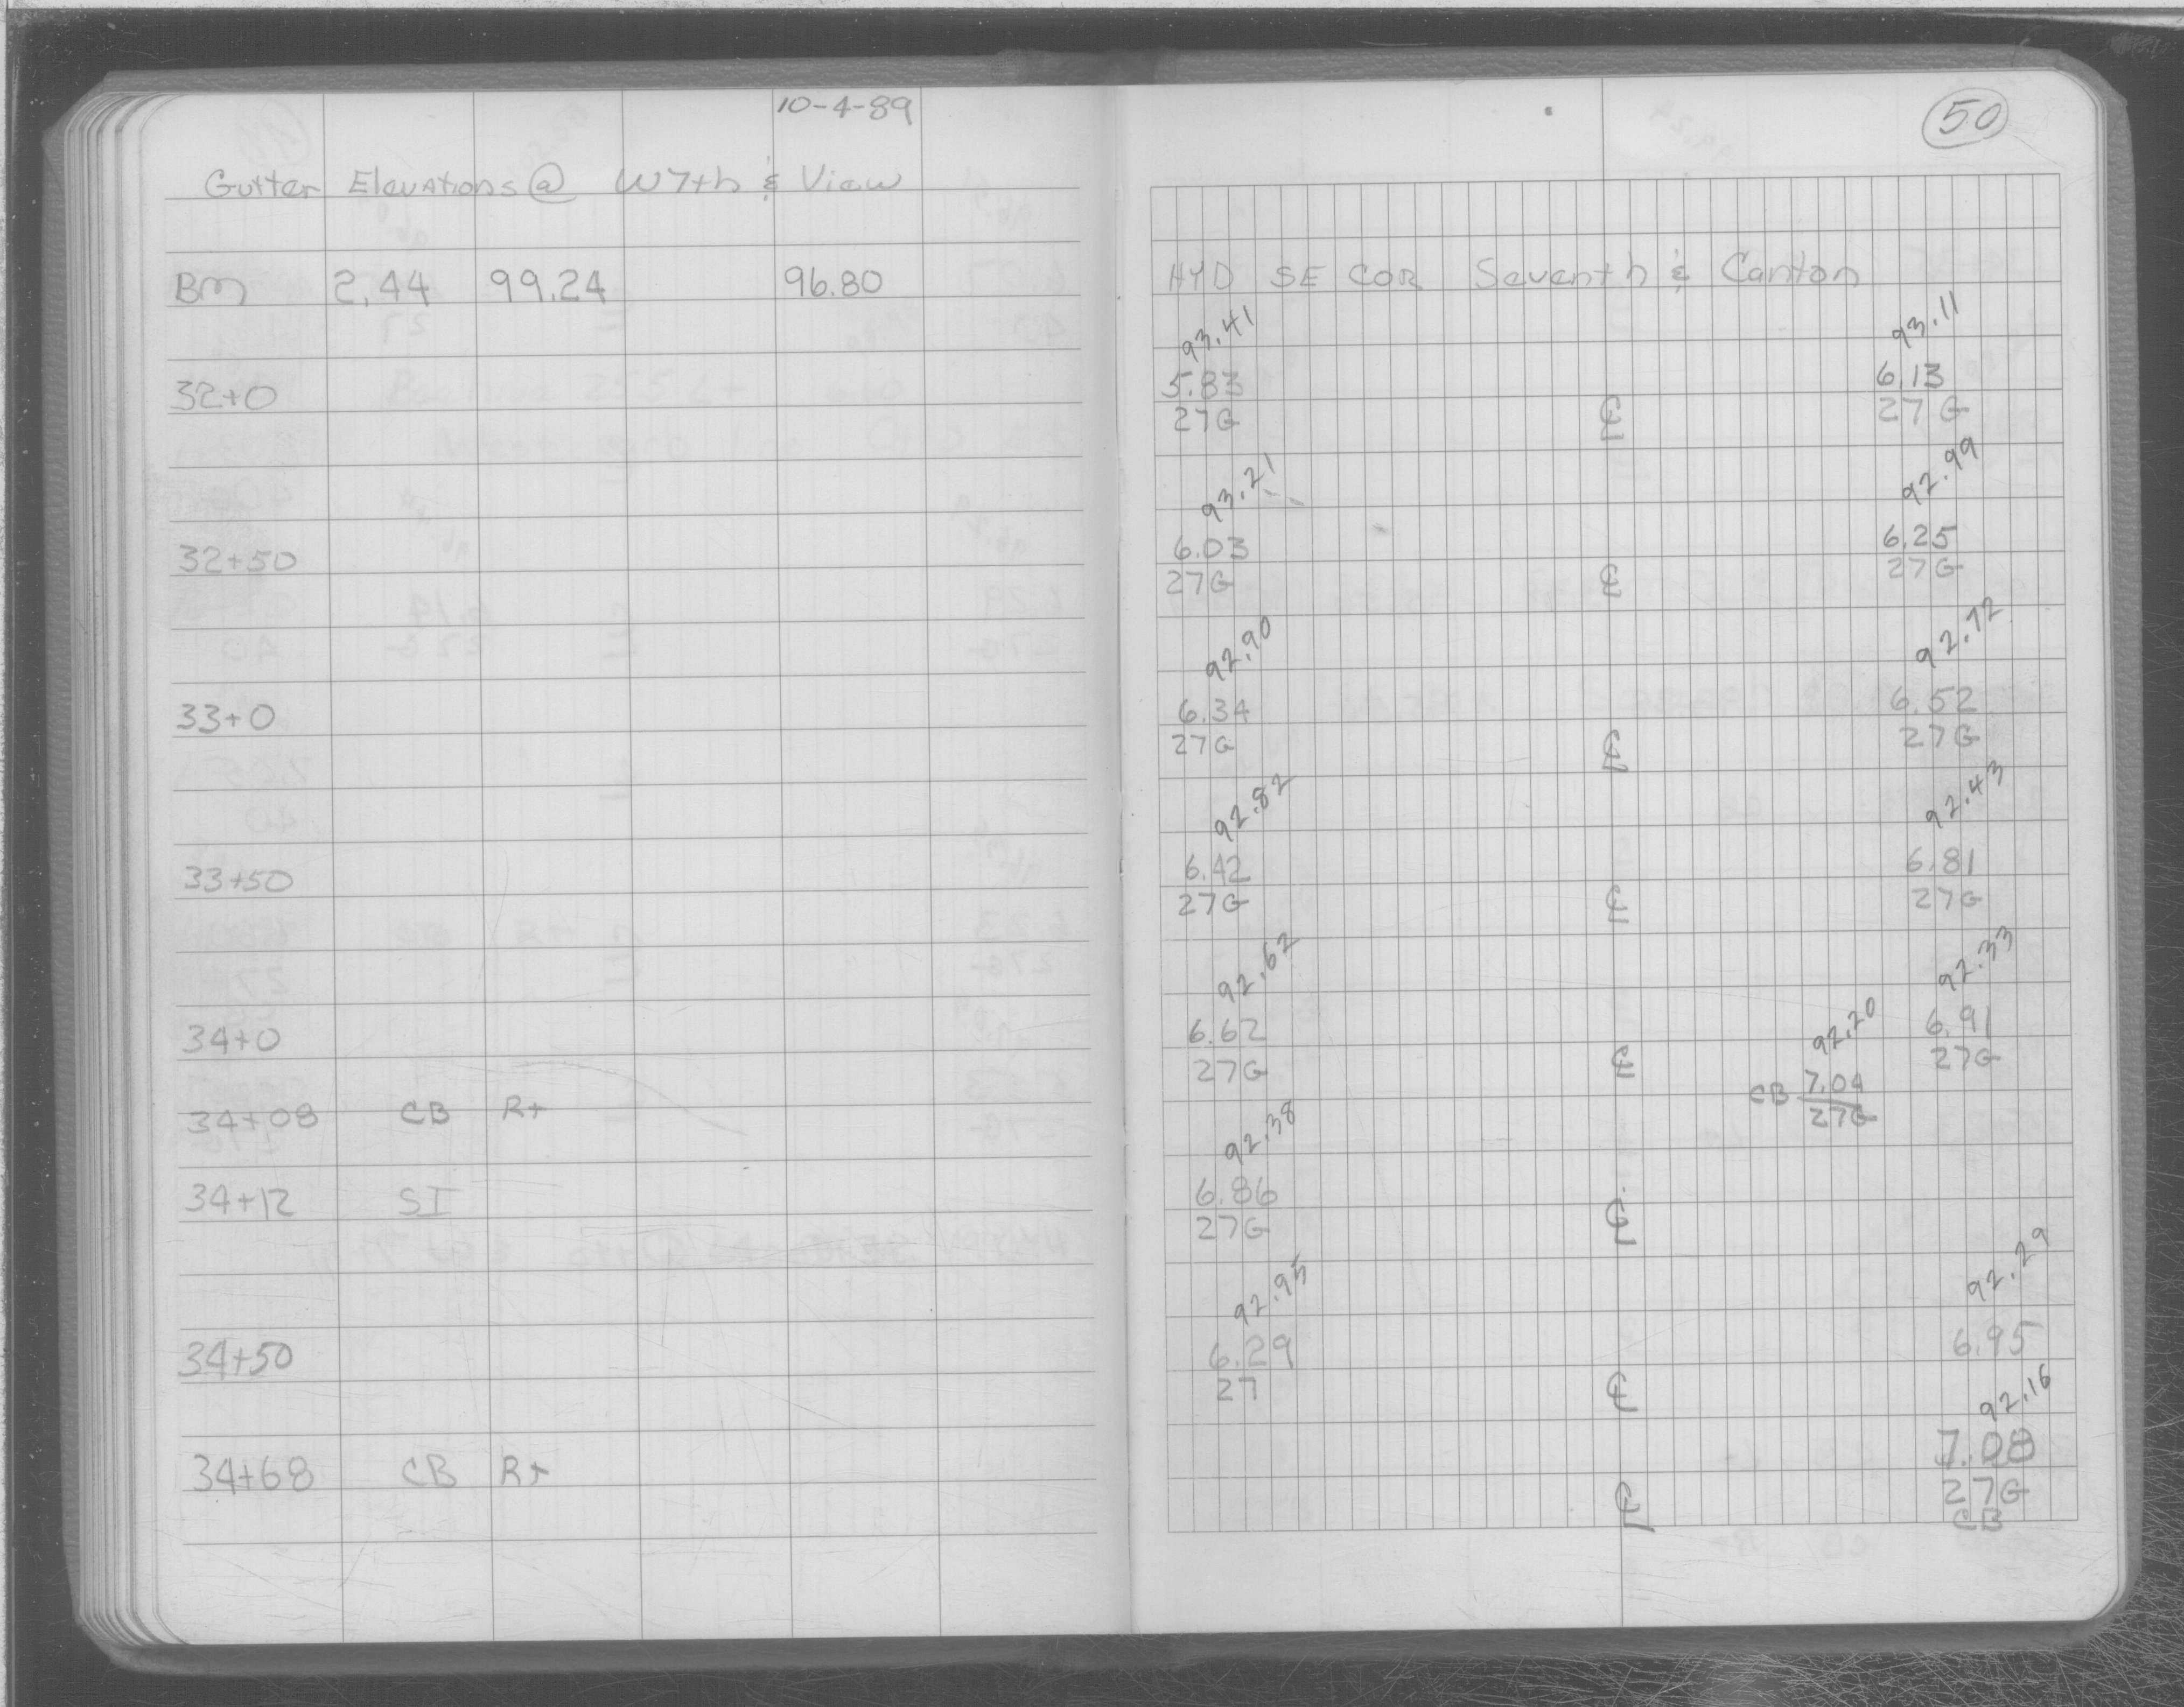 10-4-89
Gutter Elevations @ W 7th & View
BM 2.44 99.24 96.80
32+0
32+50
33+0
33+50
34+0
34+08 CB Rt
34+12 SI
34+50
34+68 CB Rt
50
HYD SE COR Seventh & Canton
93.41 93.11
5.83 6.13
27G ℄ 27G
93.21 92.99
6.03 6.25
27G ℄ 27G
92.90 92.72
6.34 6.52
27G ℄ 27G
92.82 92.43
6.42 6.81
27G ℄ 27G
92.62 92.33
6.62 6.91
27G ℄ 27G
92.20
CB 7.04
27G
92.38
6.86
27G ℄
92.95 92.29
6.29 6.95
27 ℄
92.16
7.08
℄ 27G
CB